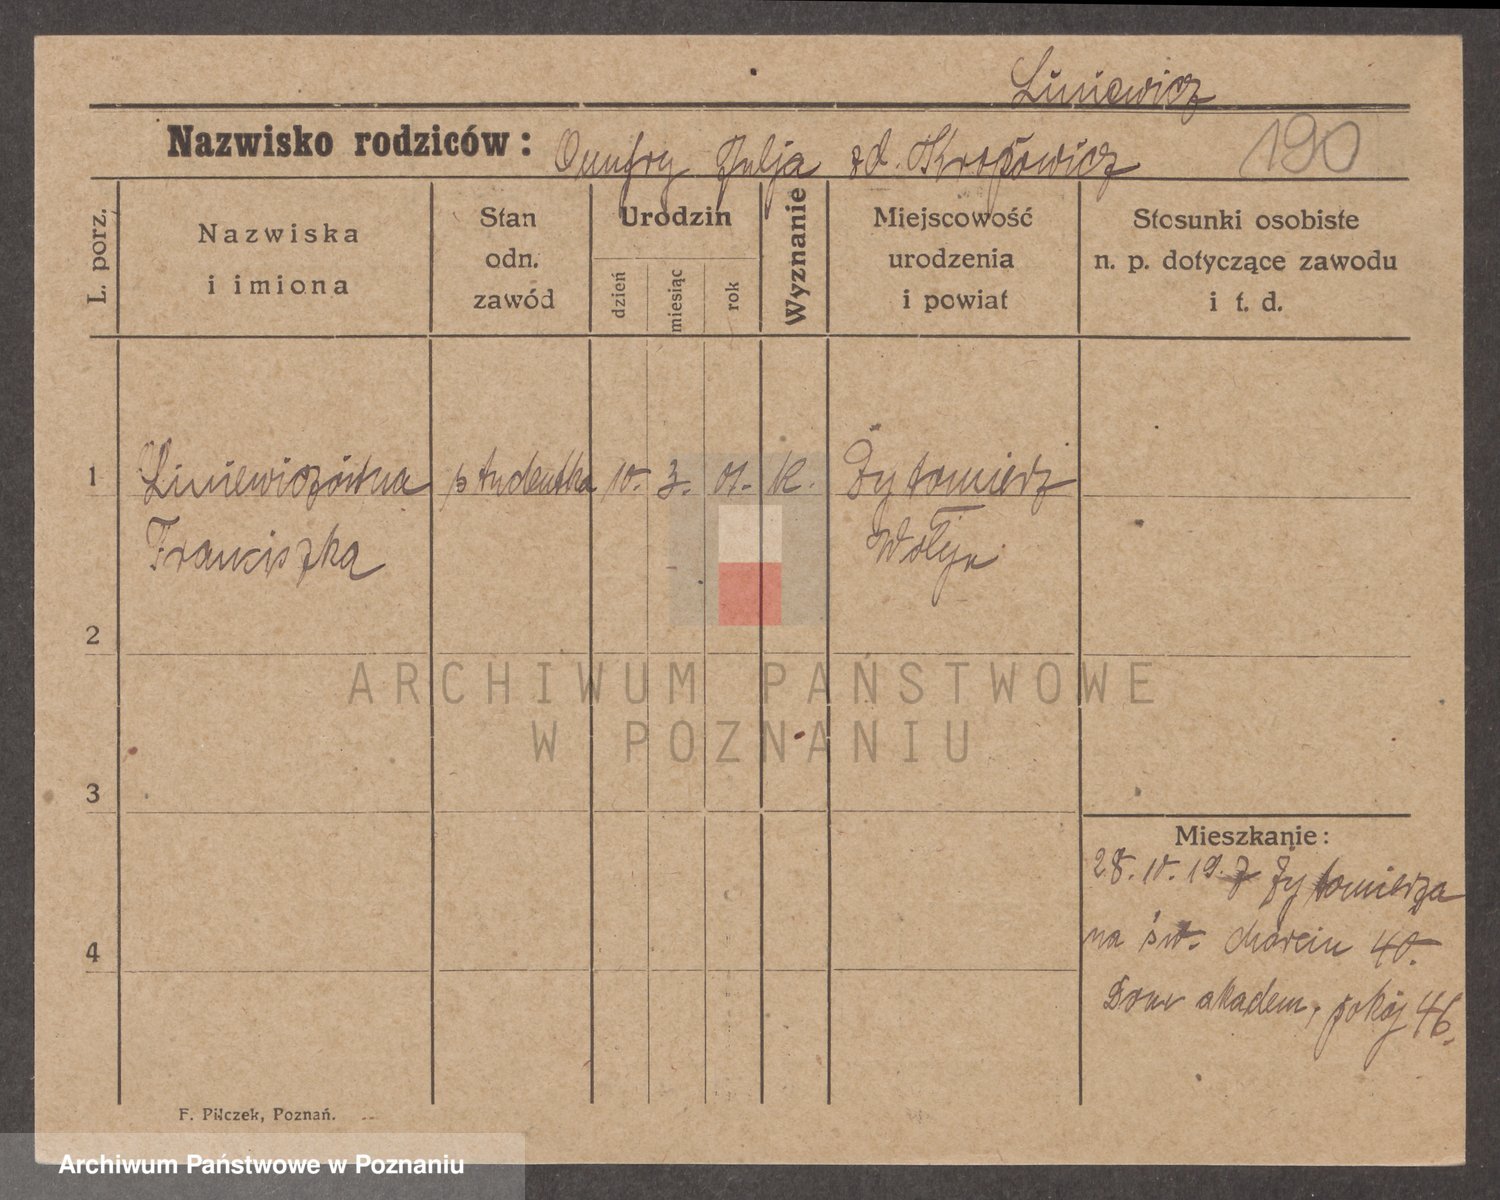 Liniewicz
Nazwisko rodziców: Onufry Julja zd. Kropowicz
190
L. porz.
Nazwiska
i imiona
Stan
odn.
zawód
Urodzin
dzień
miesiąc
rok
Wyznanie
Miejscowość
urodzenia
i powiat
Stosunki osobiste
n. p. dotyczące zawodu
i t. d.
1 Liniewiczówna studentka 10. 3. 01. K. Żytomierz
Franciszka Wołyń
2
ARCHIWUM PAŃSTWOWE
W POZNANIU
3
Mieszkanie:
28. 10. 19. Z Żytomierza
4 na św. Marcin 40.
Dom akadem, pokój 46.
F. Pilczek, Poznań.
Archiwum Państwowe w Poznaniu